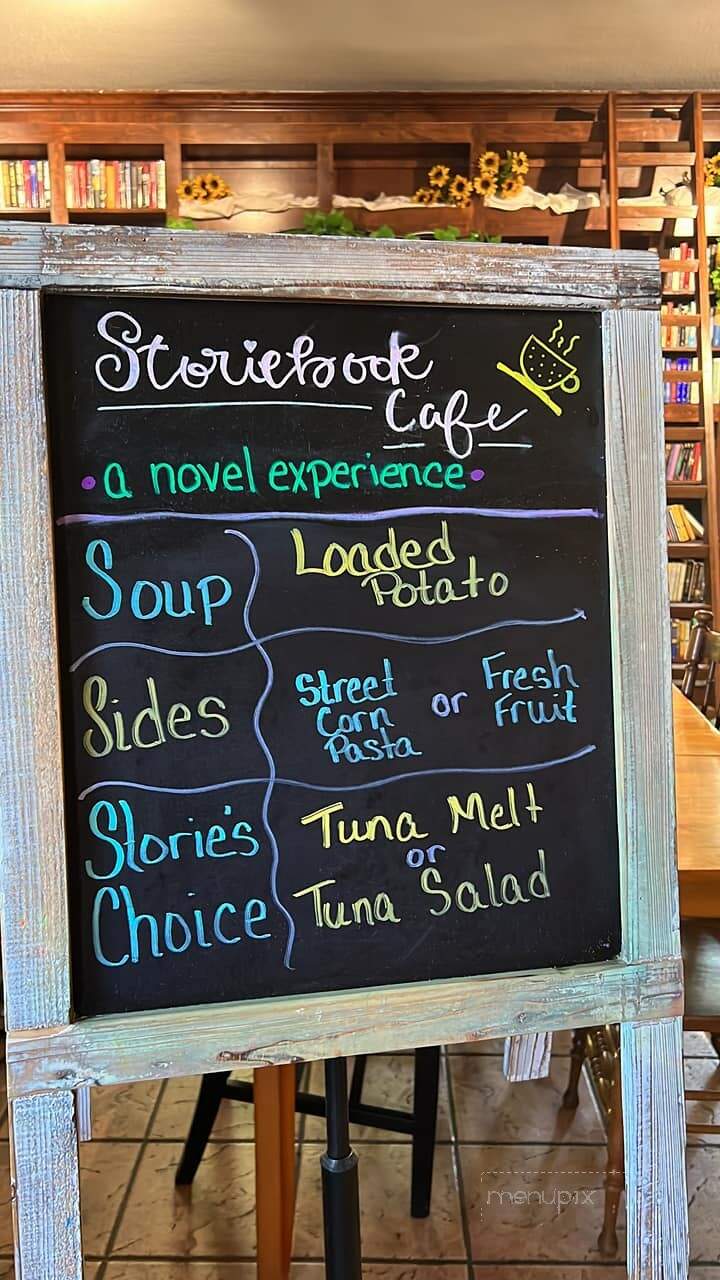 Storiebook
Cafe
• a novel experience •
Soup
Loaded
Potato
Sides
Street
Corn
Pasta
or
Fresh
Fruit
Storie's
Choice
Tuna Melt
or
Tuna Salad
menupix